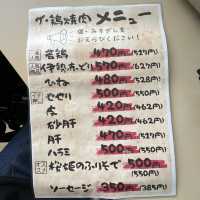 ザ・鶏焼肉 メニュー
塩・みそダレを
お選びください!
若鶏 470円(517円)
伊勢赤どり 570円(627円)
ひね 480円(528円)
セセリ 500円(550円)
皮 420円(462円)
砂肝 420円(462円)
肝 470円(517円)
ハラミ 500円(550円)
桜姫のふりそで 500円(550円)
ソーセージ 350円(385円)